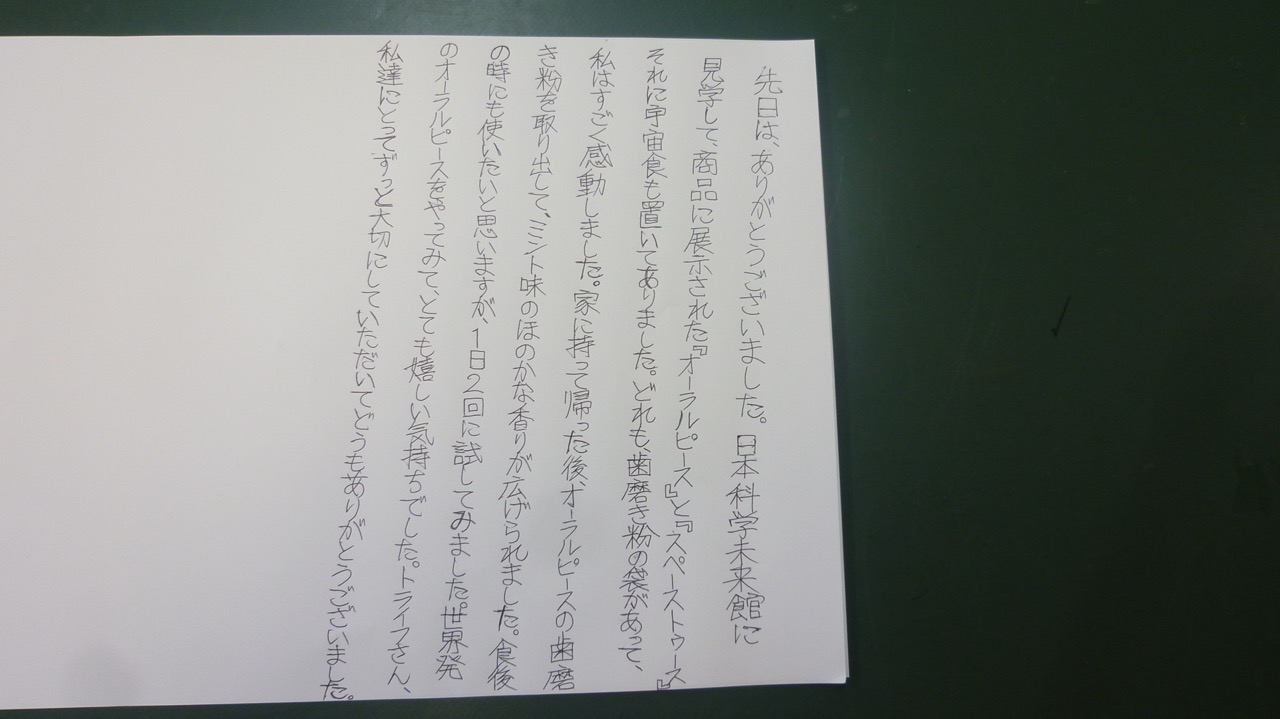 先日は、ありがとうございました。日本科学未来館に
見学して、商品に展示された『オーラルピース』と『スペーストゥース』
それに宇宙食も置いてありました。どれも、歯磨き粉の袋があって、
私はすごく感動しました。家に持って帰った後、オーラルピースの歯磨
き粉を取り出して、ミント味のほのかな香りが広げられました。食後
の時にも使いたいと思いますが、1日2回に試してみました。世界発
のオーラルピースをやってみて、とても嬉しい気持ちでした。トライフさん、
私達にとってずっと大切にしていただいてどうもありがとうございました。